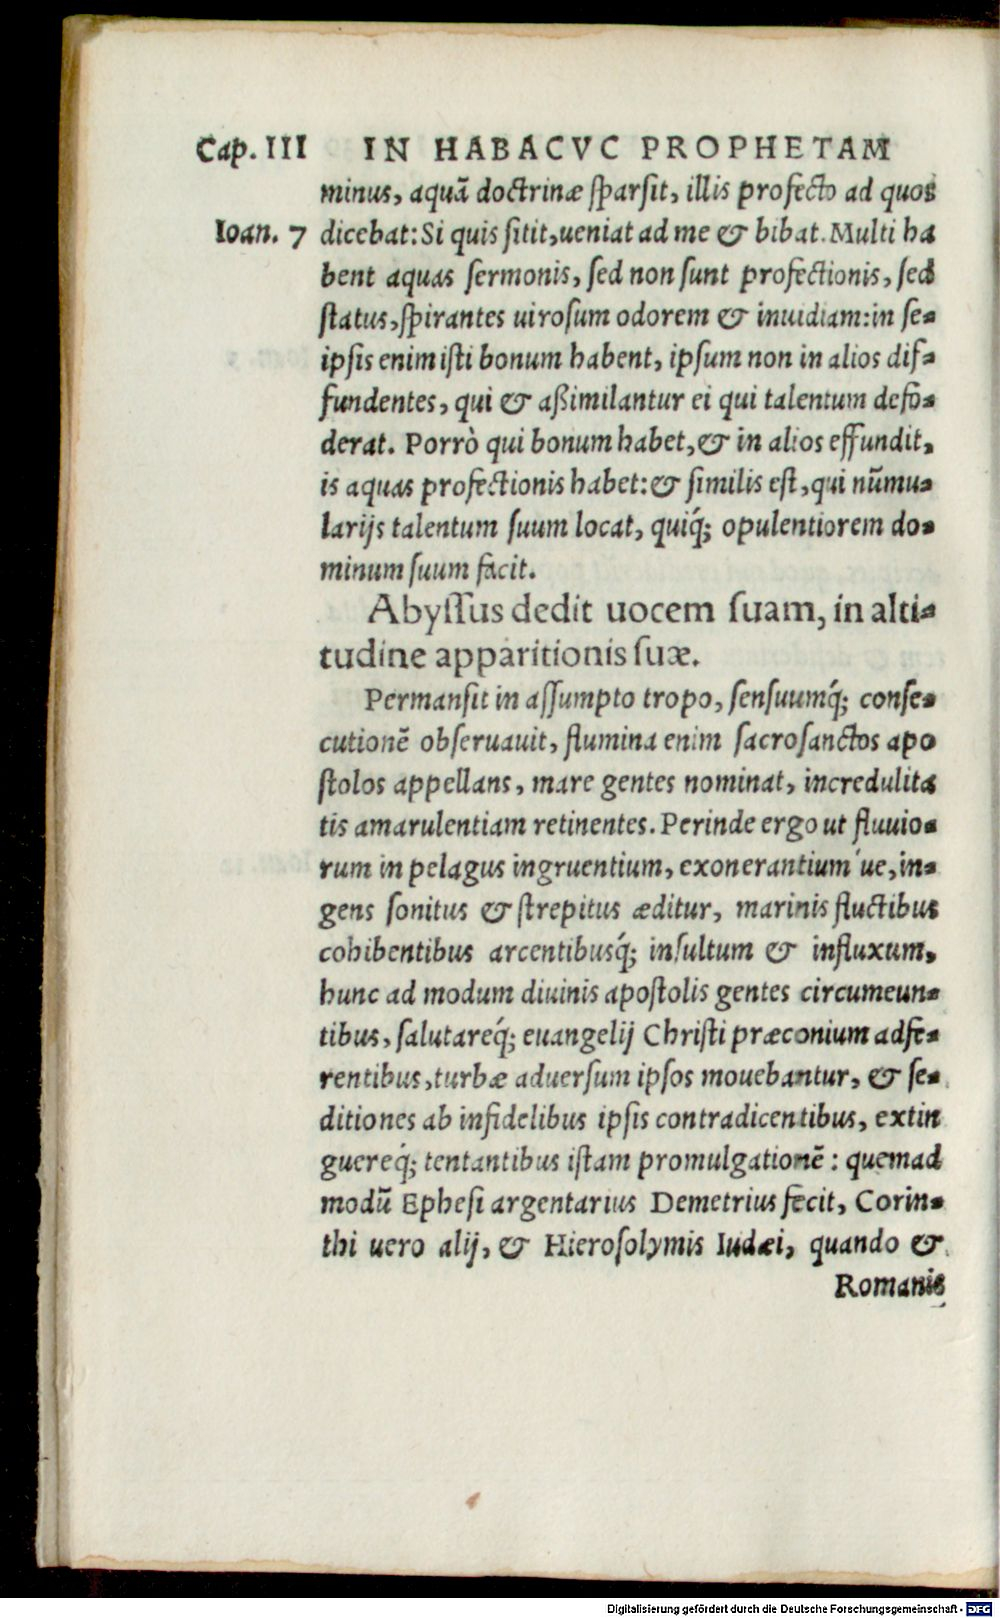 Cap. III IN HABACVC PROPHETAM
minus, aquā doctrinæ ſparſit, illis profecto ad quos
Ioan. 7 dicebat: Si quis ſitit, ueniat ad me & bibat. Multi ha
bent aquas ſermonis, ſed non ſunt profectionis, ſed
ſtatus, ſpirantes uiroſum odorem & inuidiam: in ſe-
ipſis enim iſti bonum habent, ipſum non in alios dif-
fundentes, qui & aßimilantur ei qui talentum defō-
derat. Porrò qui bonum habet, & in alios effundit,
is aquas profectionis habet: & ſimilis eſt, qui nūmu-
larijs talentum ſuum locat, quiq́; opulentiorem do-
minum ſuum facit.
Abyſſus dedit uocem ſuam, in alti-
tudine apparitionis ſuæ.
Permanſit in aſſumpto tropo, ſenſuumq́; conſe-
cutionē obſeruauit, flumina enim ſacroſanctos apo
ſtolos appellans, mare gentes nominat, incredulita
tis amarulentiam retinentes. Perinde ergo ut fluuio-
rum in pelagus ingruentium, exonerantium ́ue, in-
gens ſonitus & ſtrepitus æditur, marinis fluctibus
cohibentibus arcentibusq́; inſultum & influxum,
hunc ad modum diuinis apoſtolis gentes circumeun-
tibus, ſalutareq́; euangelij Chriſti præconium adfe-
rentibus, turbæ aduerſum ipſos mouebantur, & ſe-
ditiones ab infidelibus ipſis contradicentibus, extin
guereq́; tentantibus iſtam promulgationē: quemad
modū Epheſi argentarius Demetrius fecit, Corin-
thi uero alij, & Hieroſolymis Iudæi, quando &
Romanis
Digitalisierung gefördert durch die Deutsche Forschungsgemeinschaft - DFG